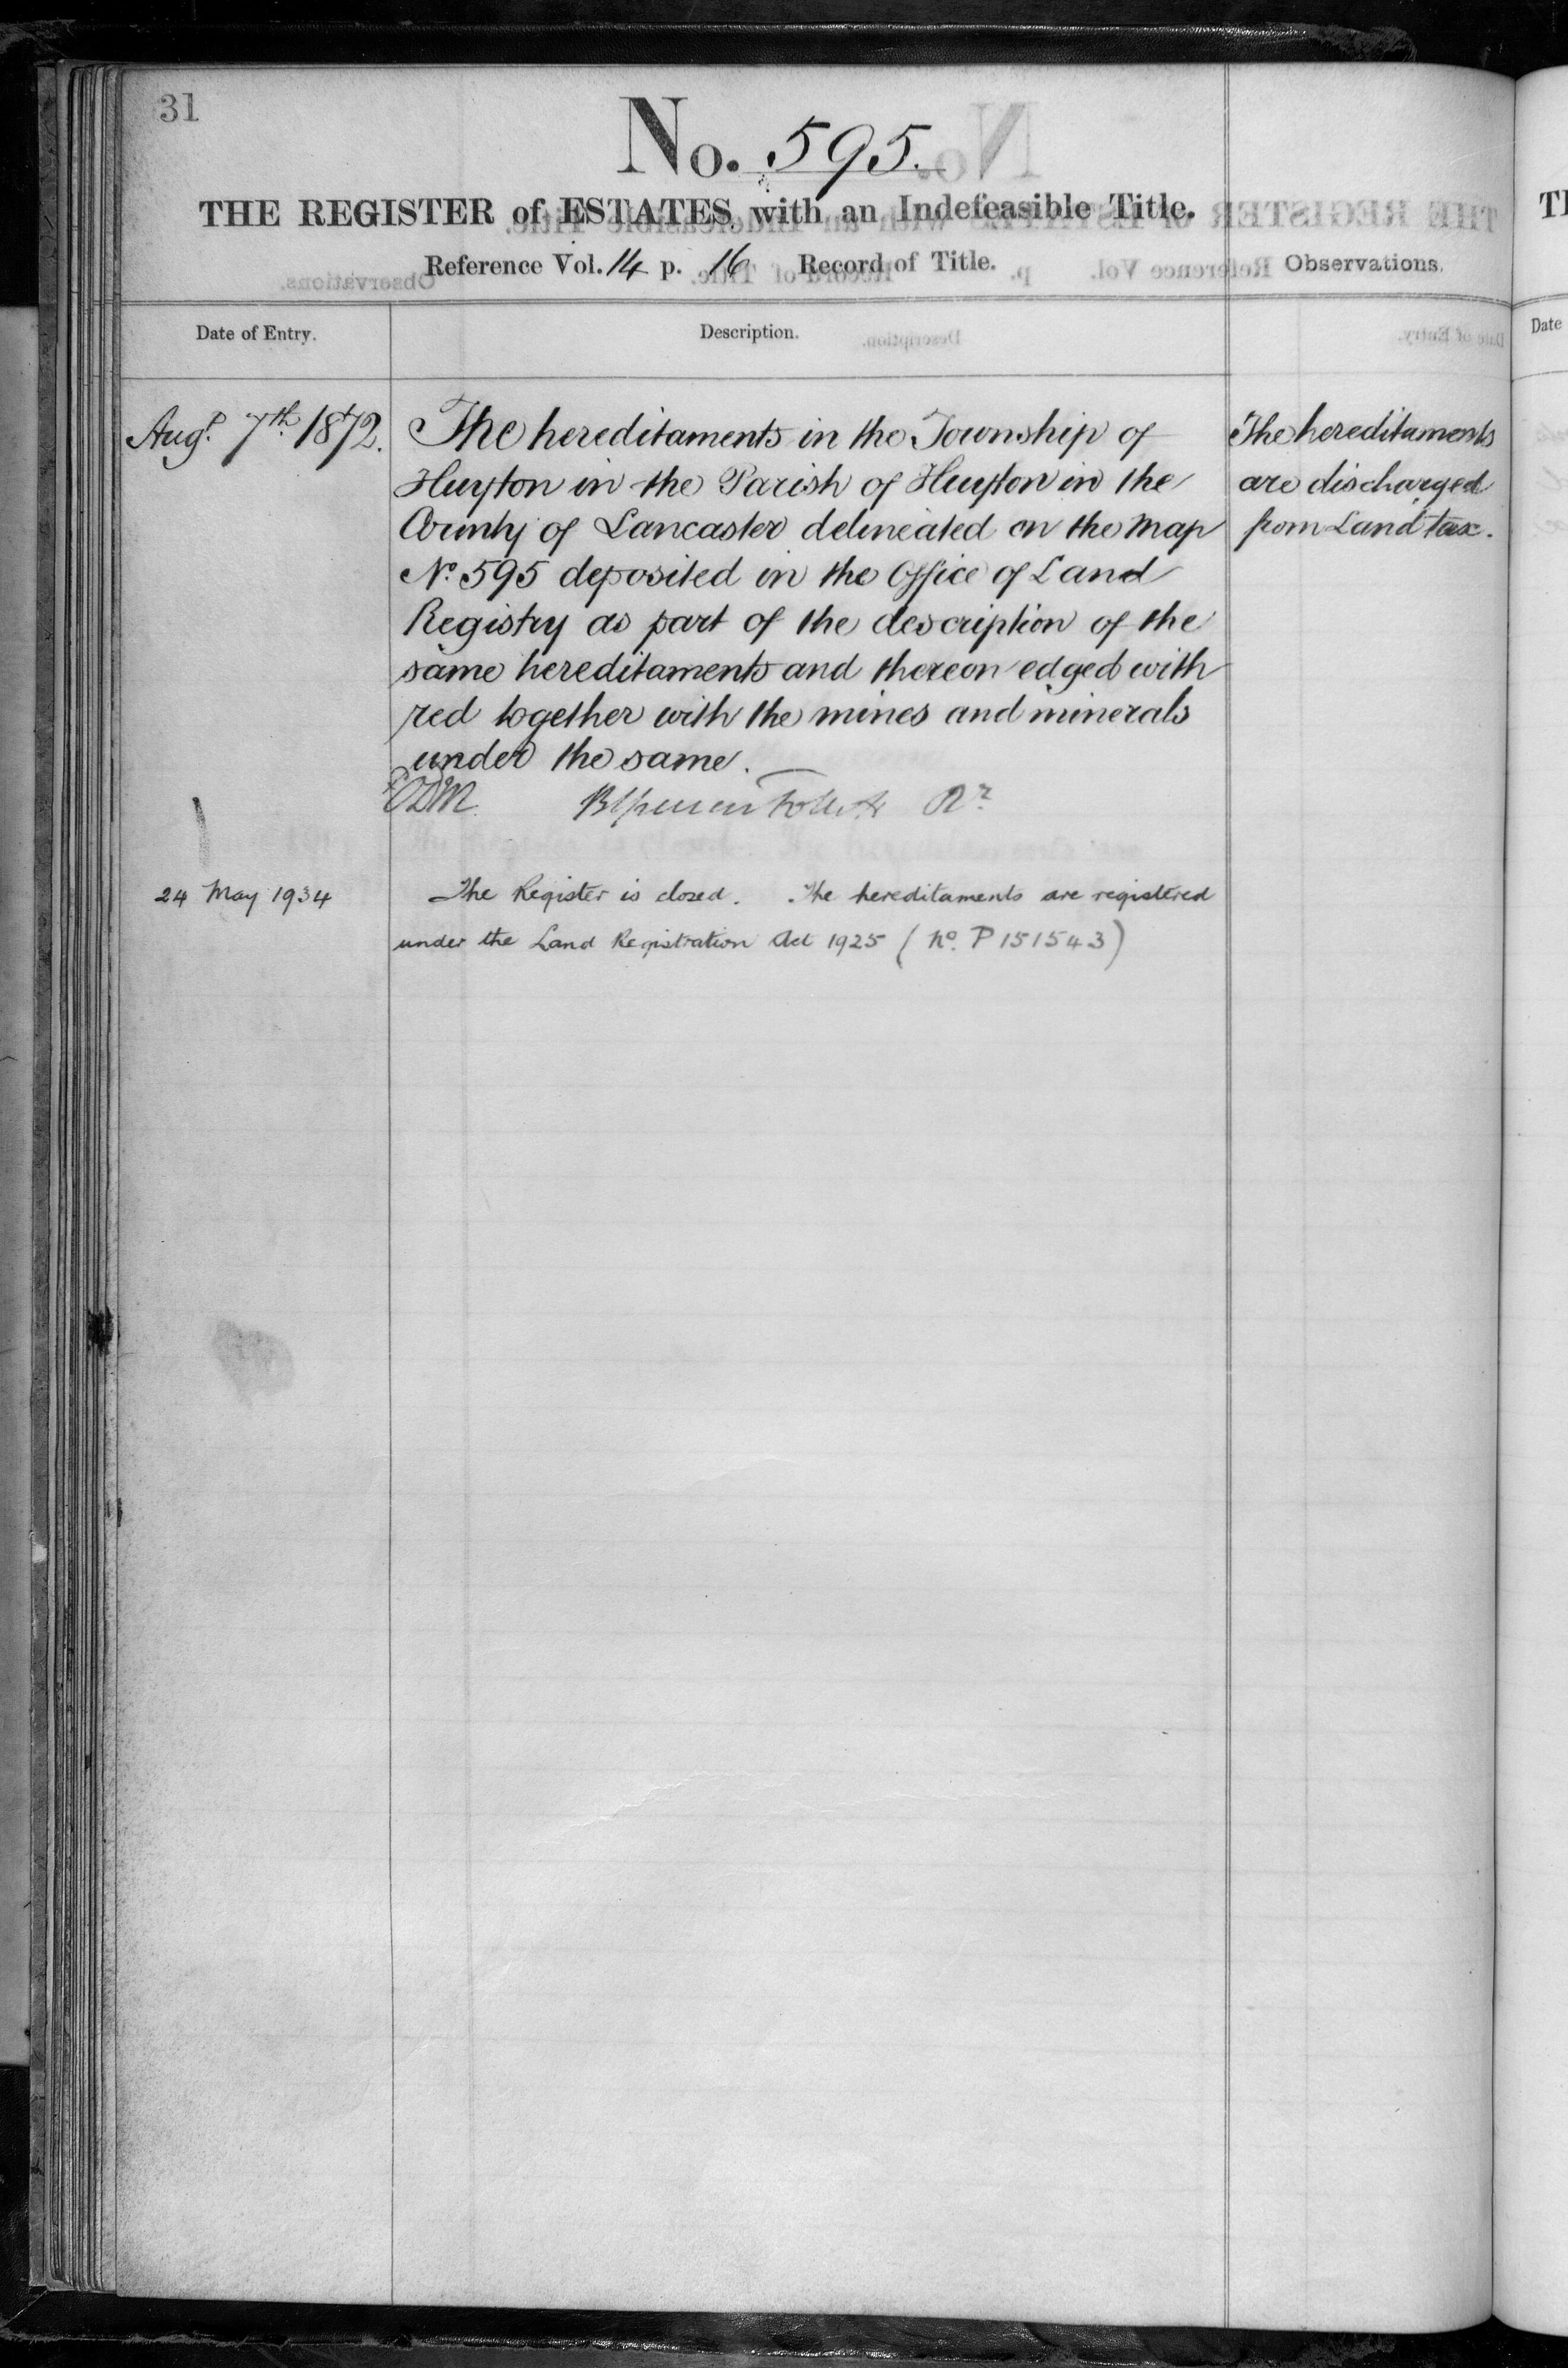 31
No. 595.
THE REGISTER of ESTATES with an Indefeasible Title.
Reference Vol. 14 p. 16 Record of Title.
Observations.
Date of Entry.
Description.
Date
Augt. 7th. 1872.
The hereditaments in the Township of
Huyton in the Parish of Huyton in the
County of Lancaster delineated on the Map
No. 595 deposited in the Office of Land
Registry as part of the description of the
same hereditaments and thereon edged with
red together with the mines and minerals
under the same.
The hereditaments
are discharged
from Land tax.
Rr
24 May 1934
The Register is closed. The hereditaments are registered
under the Land Registration Act 1925 (No. P151543)